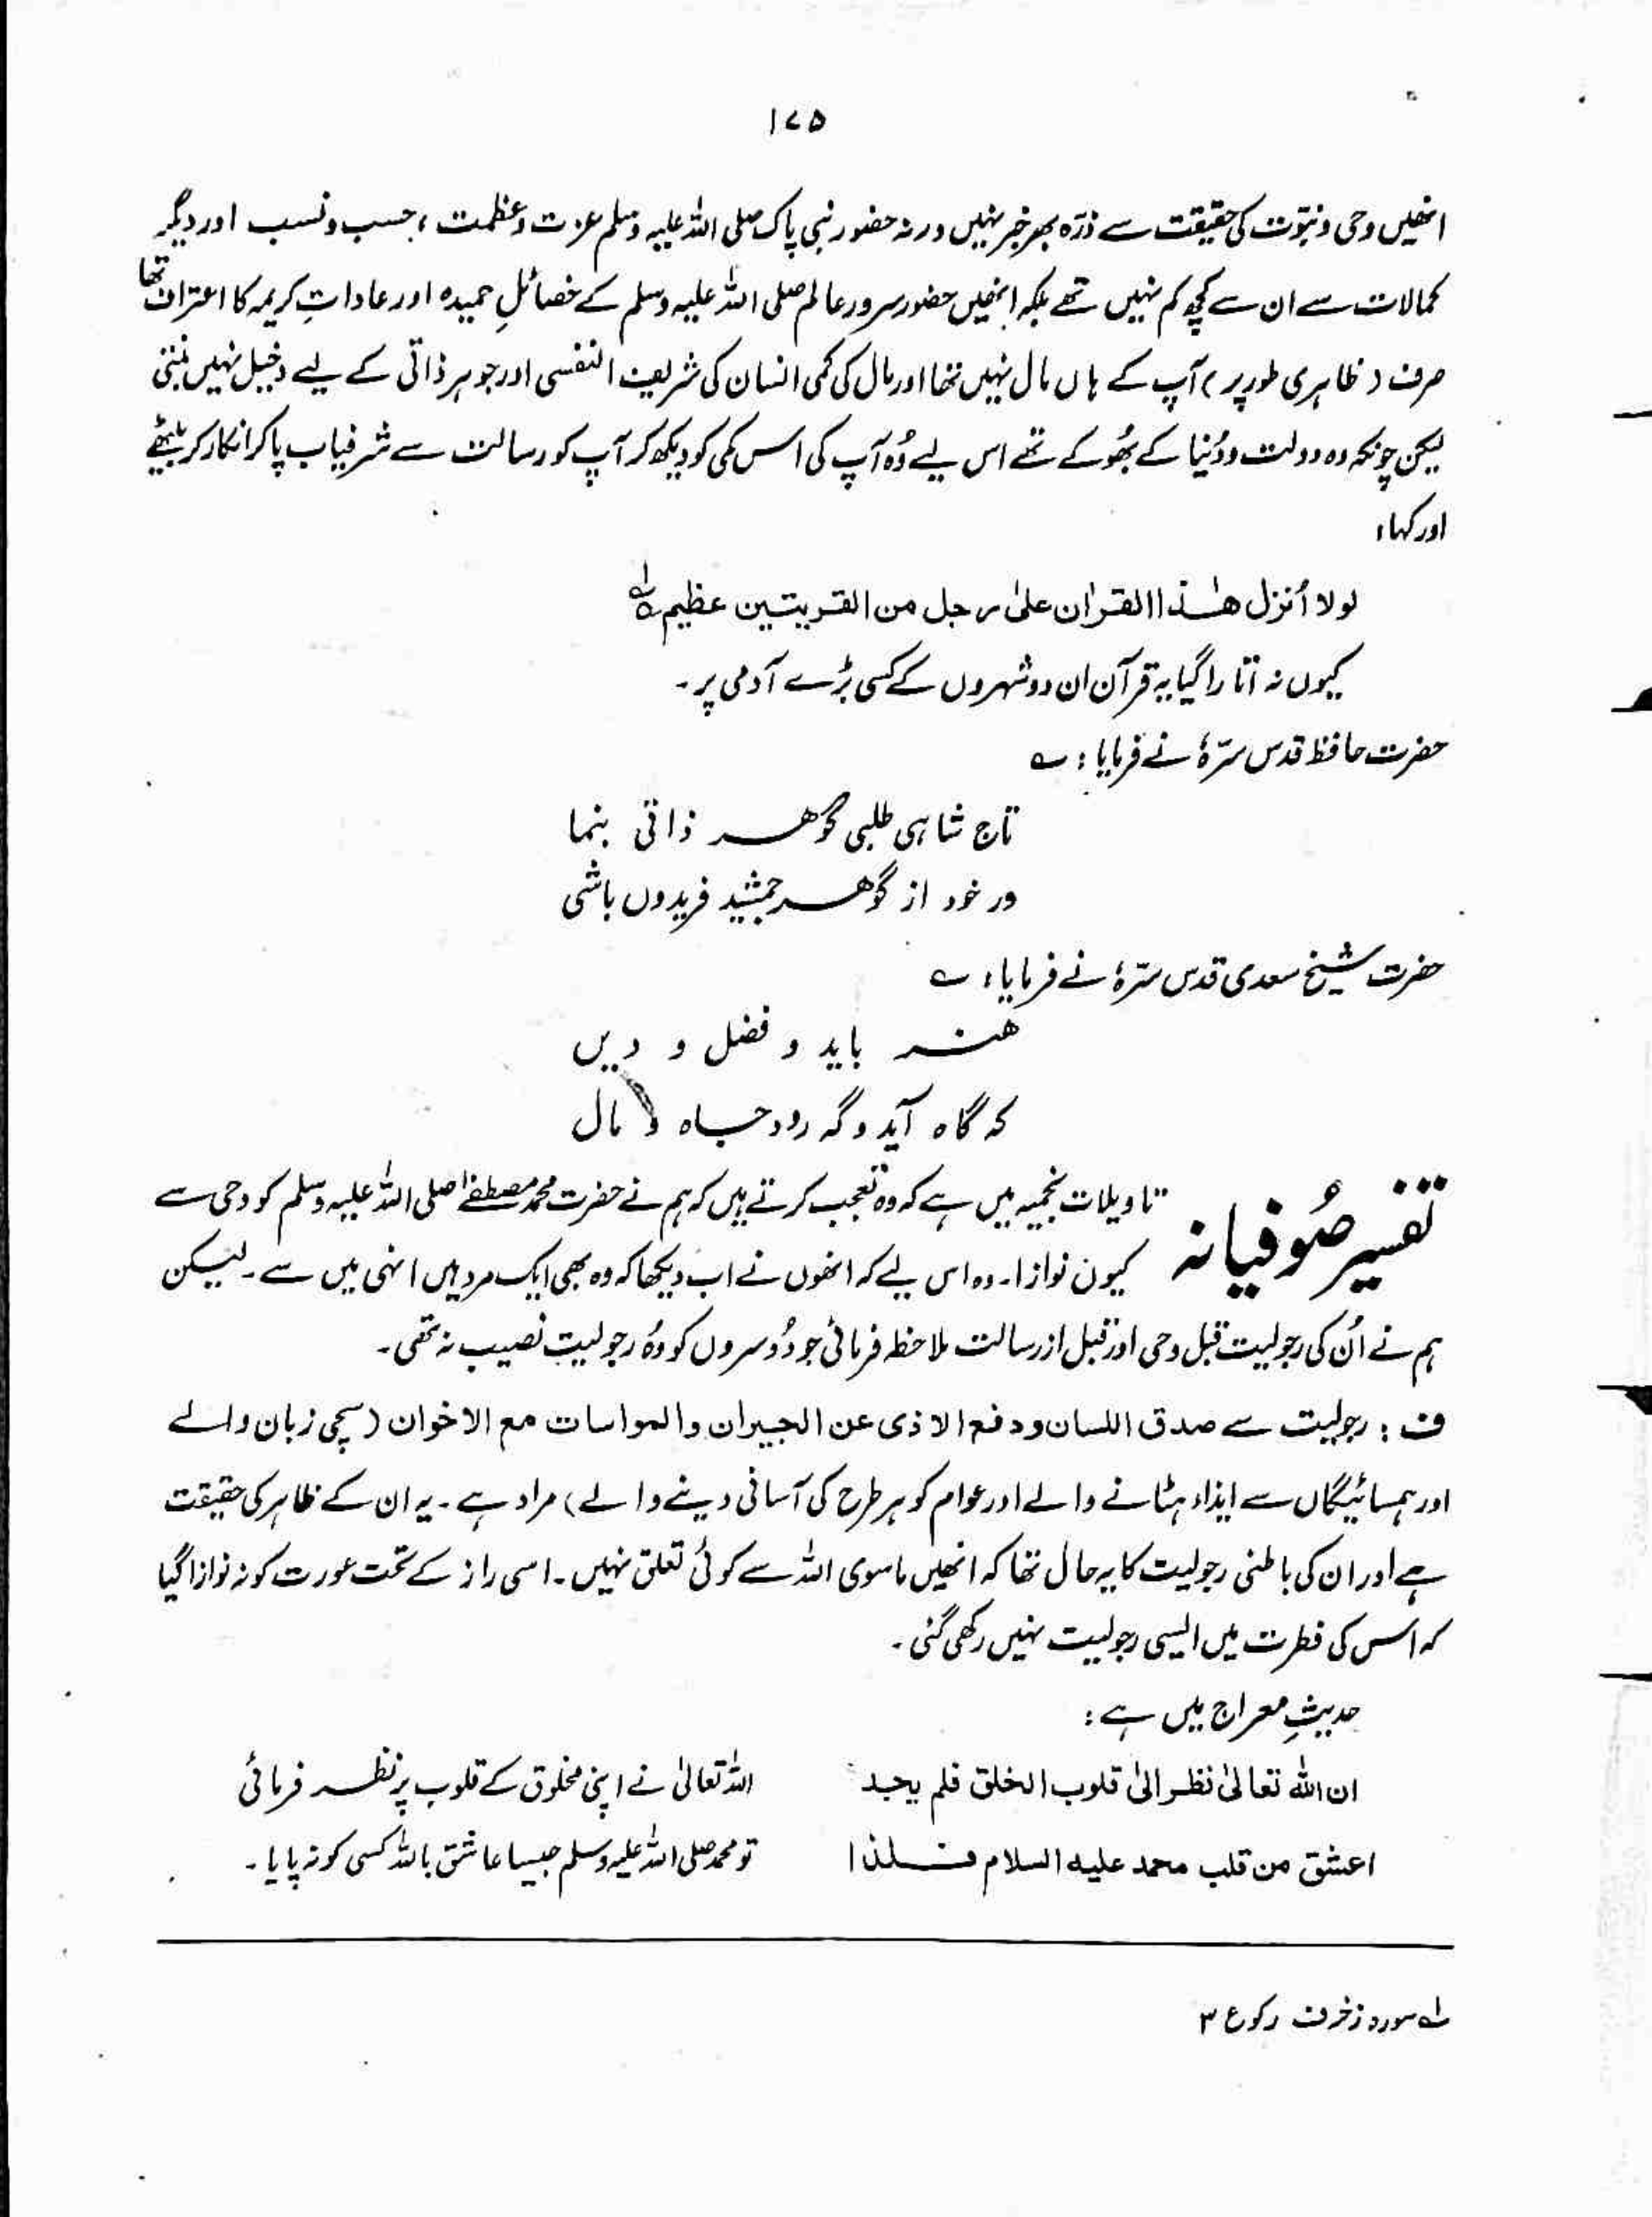 ۱۷۵
انھیں وحی و نبوّت کی حقیقت سے ذرّہ بھر خبر نہیں ورنہ حضور نبی پاک صلی اللہ علیہ وسلم عزت و عظمت ، حسب و نسب اور دیگر
کمالات سے ان سے کچھ کم نہیں تھے بلکہ انھیں حضور سرور عالم صلی اللہ علیہ وسلم کے خصائلِ حمیدہ اور عاداتِ کریمہ کا اعتراف تھا
صرف (ظاہری طور پر) آپ کے ہاں مال نہیں تھا اور مال کی کمی انسان کی شریف النفسی اور جوہر ذاتی کے لیے دخیل نہیں بنتی
لیکن چونکہ وہ دولت و دُنیا کے بھُوکے تھے اس لیے وُہ آپ کی اس کمی کو دیکھ کر آپ کو رسالت سے شرفیاب پا کر انکار کر بیٹھے
اور کہا:
لولا أنزل هٰذا القراٰن علیٰ رجل من القریتین عظیم ؎۱
کیوں نہ اتارا گیا یہ قرآن ان دو شہروں کے کسی بڑے آدمی پر۔
حضرت حافظ قدس سرّہٗ نے فرمایا: ؎
تاج شاہی طلبی گوھر ذاتی بنما
ور خود از گوھر جمشید فریدوں باشی
حضرت شیخ سعدی قدس سرّہٗ نے فرمایا: ؎
ھنر باید و فضل و دیں
کہ گاہ آید و گہ رود جاہ و مال
تفسیر صُوفیانہ تاویلات نجمیہ میں ہے کہ وہ تعجب کرتے ہیں کہ ہم نے حضرت محمد مصطفےٰ صلی اللہ علیہ وسلم کو وحی سے
کیوں نوازا۔ وہ اس لیے کہ انھوں نے اب دیکھا کہ وہ بھی ایک مرد ہیں انہی میں سے۔ لیکن
ہم نے اُن کی رجولیت قبل وحی اور قبل از رسالت ملاحظہ فرمائی جو دُوسروں کو وُہ رجولیت نصیب نہ تھی۔
ف : رجولیت سے صدق اللسان و دفع الاذی عن الجیران والمواسات مع الاخوان (سچی زبان والے
اور ہمسائیگاں سے ایذاء ہٹانے والے اور عوام کو ہر طرح کی آسانی دینے والے) مراد ہے۔ یہ ان کے ظاہر کی حقیقت
ہے اور ان کی باطنی رجولیت کا یہ حال تھا کہ انھیں ماسوی اللہ سے کوئی تعلق نہیں۔ اسی راز کے تحت عورت کو نہ نوازا گیا
کہ اس کی فطرت میں ایسی رجولیت نہیں رکھی گئی۔
حدیثِ معراج میں ہے:
ان اللہ تعالیٰ نظر الیٰ قلوب الخلق فلم یجد
اعشق من قلب محمد علیہ السلام فلذا
اللہ تعالیٰ نے اپنی مخلوق کے قلوب پر نظر فرمائی
تو محمد صلی اللہ علیہ وسلم جیسا عاشق باللہ کسی کو نہ پایا۔
؎۱ سورہ زخرف رکوع ۳